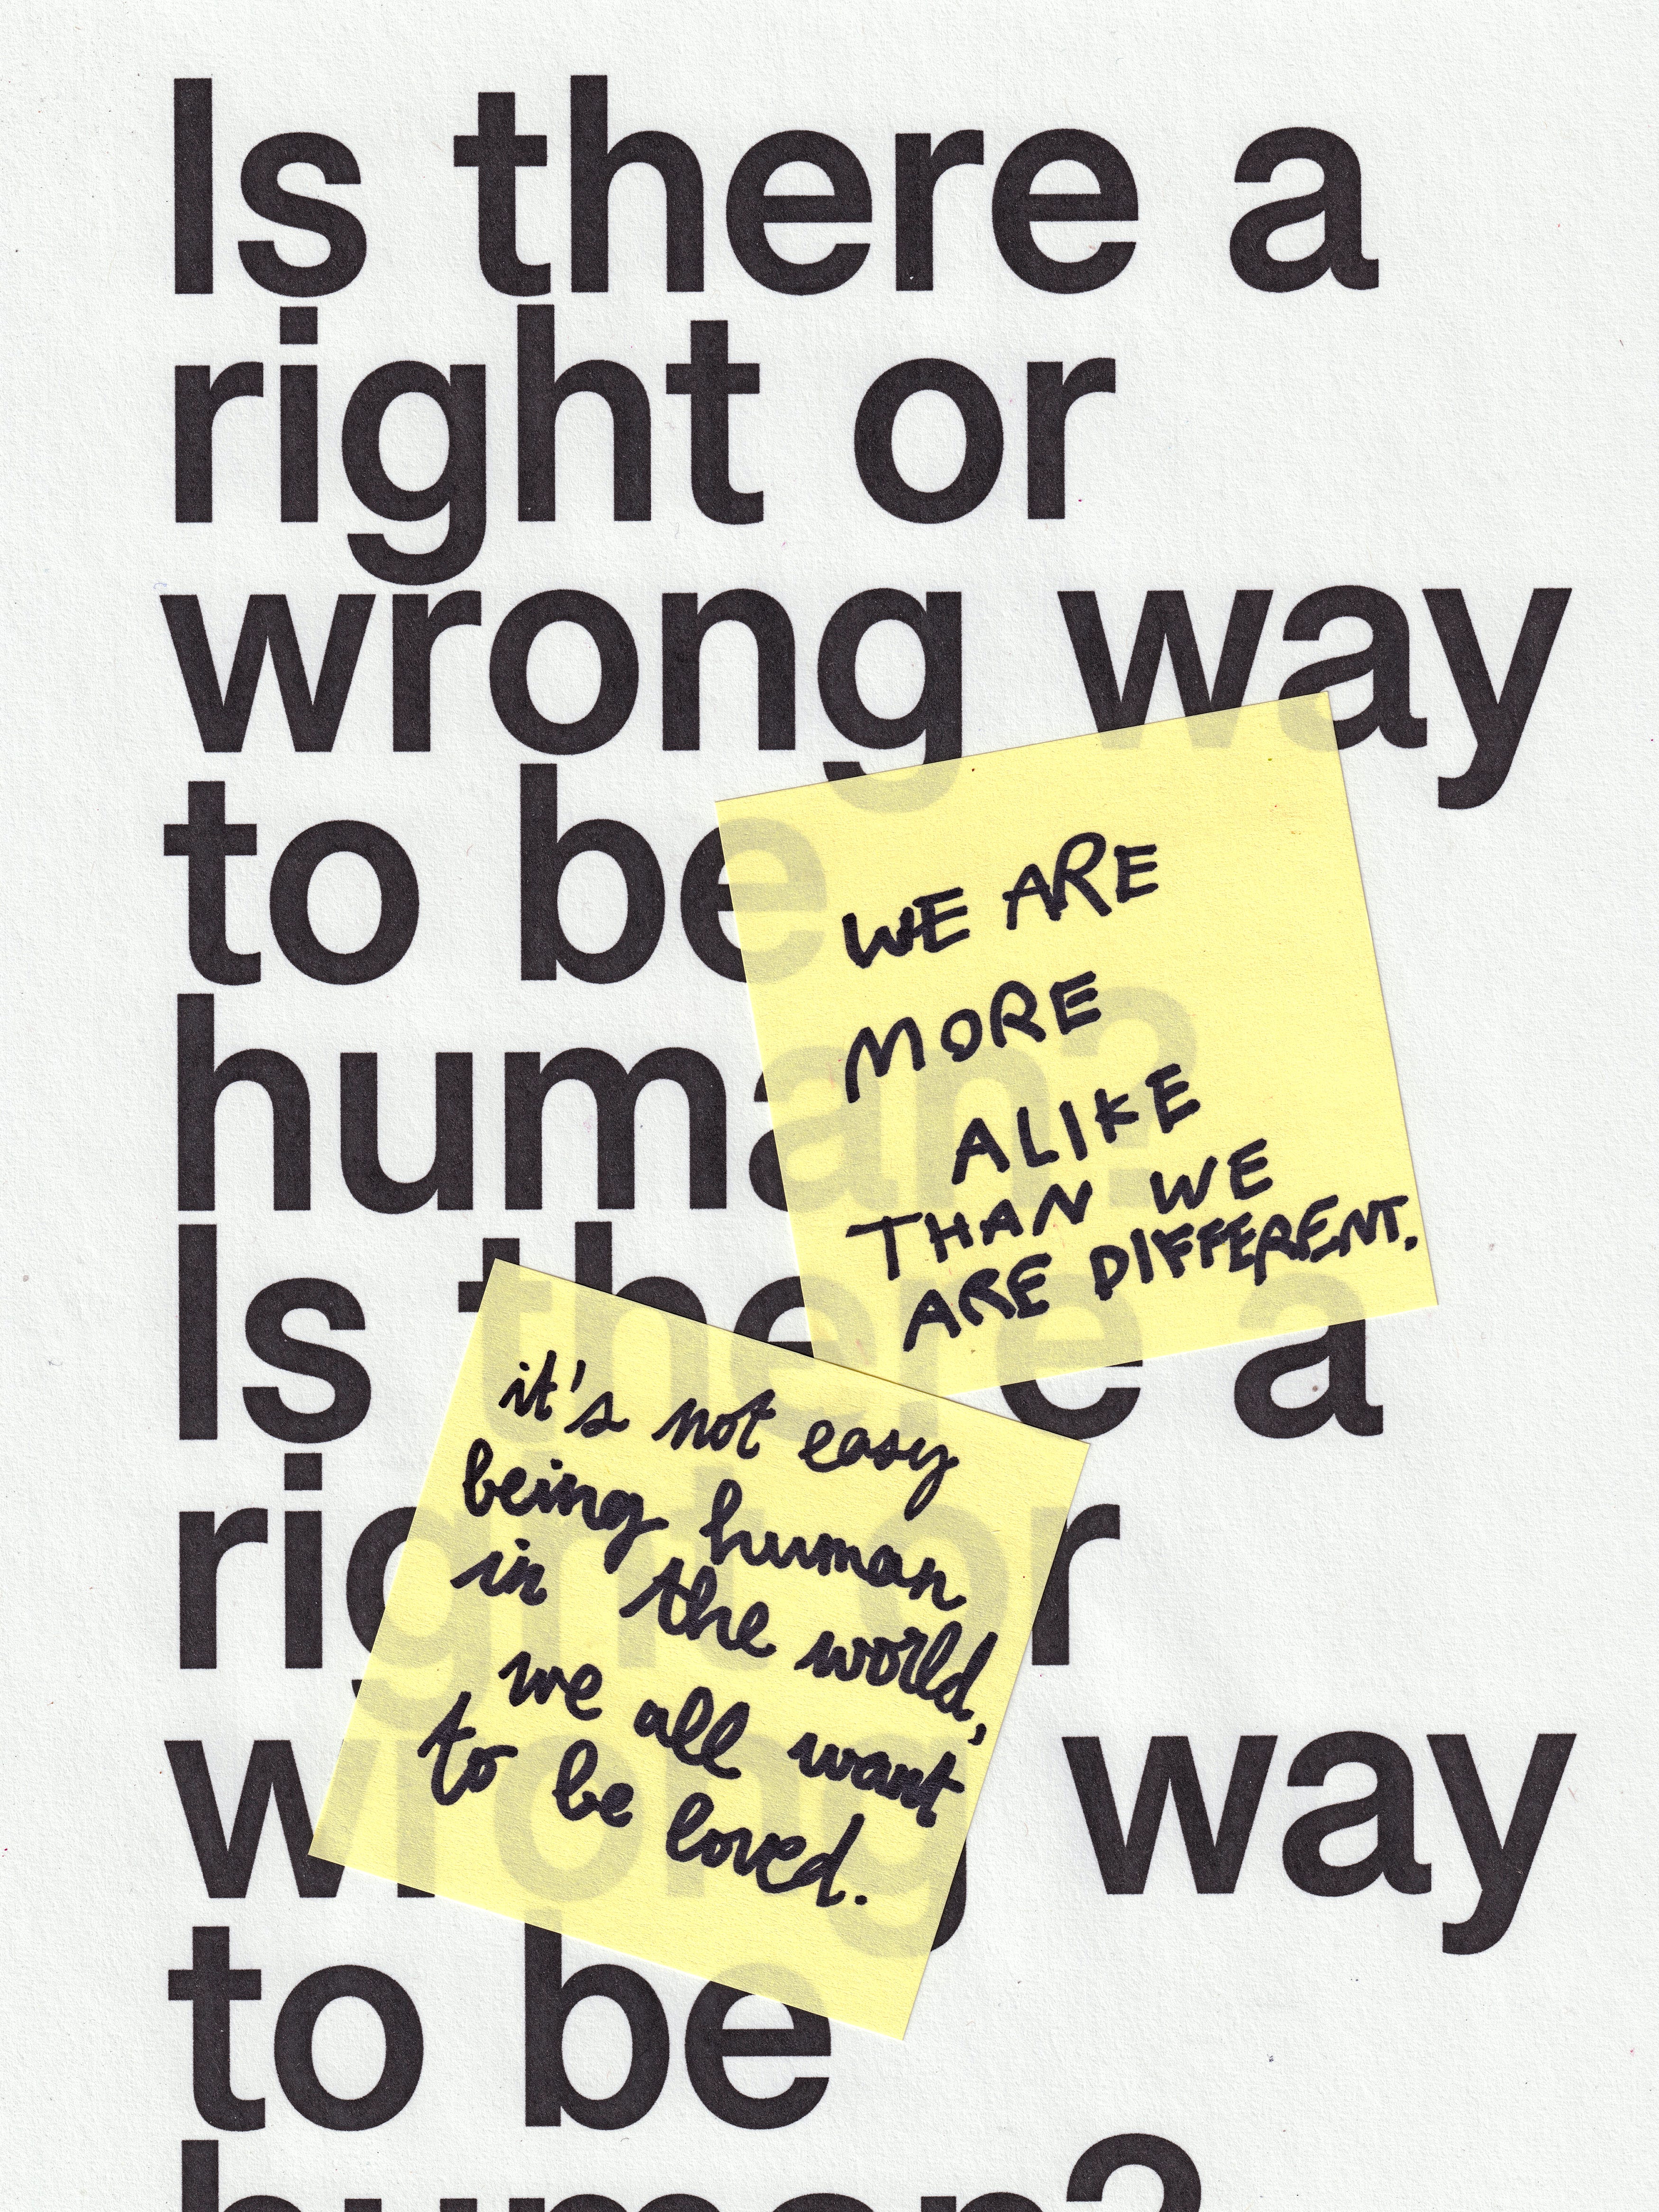 Is there a
right or
wrong way
to be
human?
WE ARE
MORE
ALIKE
THAN WE
ARE DIFFERENT.
Is there a
right or
wrong way
to be
human?
it's not easy
being human
in the world,
we all want
to be loved.